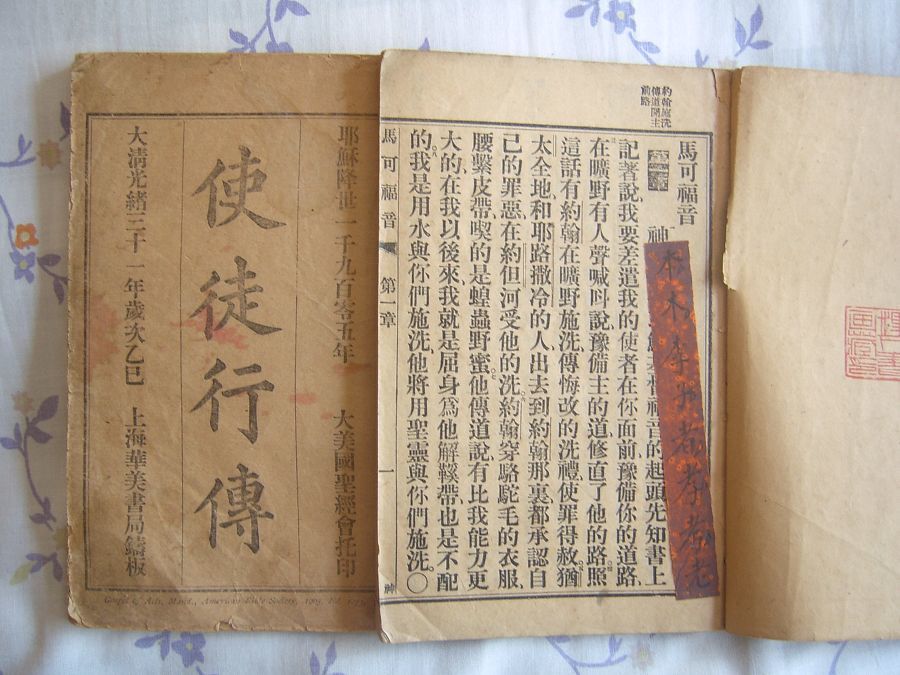 耶穌降世一千九百零五年 大美國聖經會托印
使徒行傳
大清光緒三十一年歲次乙巳 上海華美書局鑄板
Gospel of Acts, Mand., American Bible Society, 1905.
約翰施洗
傳道開主
前路
馬可福音
第一章
神 福音的起頭、先知書上
記著說、我要差遣我的使者在你面前、豫備你的道路、
在曠野有人聲喊呌說、豫備主的道、修直了他的路、照
這話有約翰在曠野施洗、傳悔改的洗禮、使罪得赦、猶
太全地、和耶路撒冷的人、出去到約翰那裏、都承認自
己的罪惡、在約但河受他的洗、約翰穿駱駝毛的衣服、
腰繫皮帶、喫的是蝗蟲野蜜、他傳道說、有比我能力更
大的、在我以後來、我就是屈身爲他解鞵帶、也是不配
的、我是用水與你們施洗、他將用聖靈與你們施洗、〇
馬可福音 第一章 一 神